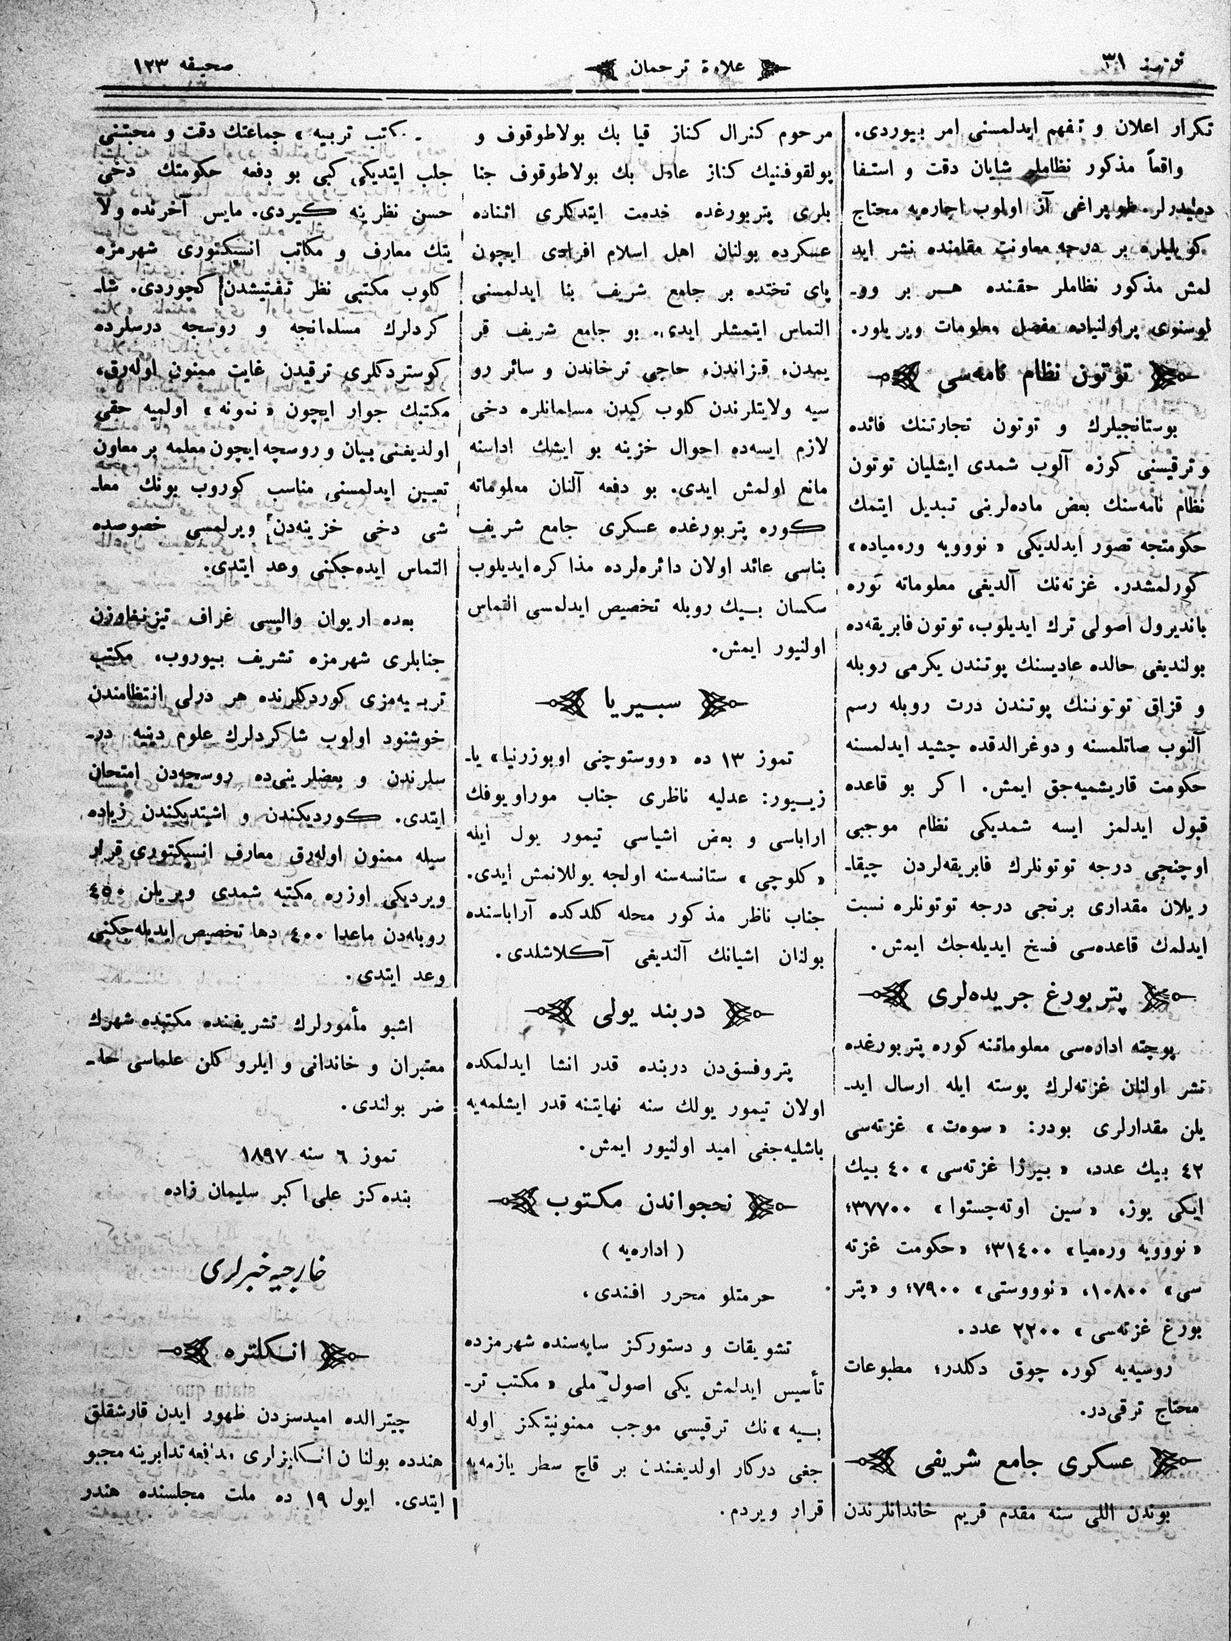 نومرو ٣١
علاوۀ ترجمان
صحیفه ١٢٣
تکرار اعلان و تفهم ایدلمسنی امر بیوردی.
واقعاً مذکور نظاملر شایان دقت و استفا
ده‌لیدرلر. طوپراغی آز اولوب اجاره‌یه محتاج
کویلیلره بر درجه معاونت مقلمنده نشر اید
لمش مذکور نظاملر حقنده هـر بر روـ
لوسنوی پراولنیاده مفصل معلومات ویریلور.
توتون نظام نامه‌سی
بوستانجیلرك و توتون تجارتنك فائده
و ترقیسنی کوزه آلوب شمدی ایشلیان توتون
نظام نامه‌سنك بعض ماده‌لرینی تبدیل ایتمك
حکومتجه تصور ایدلدیکی «نوویه وره‌میاده»
کورلمشدر. غزته‌نك آلدیغی معلوماته کوره
باندیرول اصولی ترك ایدیلوب، توتون فابریقه‌ده
بولندیغی حالده عادیسنك پوتندن یکرمی روبله
و قزاق توتوننك پوتندن درت روبله رسم
آلنوب صاتلمسنه و دوغرالدقده چشید ایدلمسنه
حکومت قاریشمیه‌جق ایمش. اکر بو قاعده
قبول ایدلمز ایسه شمدیکی نظام موجبی
اوچنجی درجه توتونلرك فابریقه‌لردن چیقاـ
ریلان مقداری برنجی درجه توتونلره نسبت
ایدلمك قاعده‌سی فسخ ایدیله‌جك ایمش.
پتربورغ جریده‌لری
پوچته اداره‌سی معلوماتنه کوره پتربورغده
نشر اولنان غزته‌لرك پوسته ایله ارسال ایدـ
یلن مقدارلری بودر: «سوه‌ت» غزته‌سی
٤٢ بیك عدد، «بیرژا غزته‌سی» ٤٠ بیك
ایکی یوز، «سین اوته‌چستوا» ٣٧٧٠٠؛
«نوویه وره‌میا» ٣١٤٠٠؛ «حکومت غزته
سی» ١٠٨٠٠، «نوووستی» ٧٩٠٠؛ و «پتر
بورغ غزته‌سی» ٢٢٠٠ عدد.
روسیه‌یه کوره چوق دکلدر؛ مطبوعات
محتاج ترقی‌در.
عسکری جامع شریفی
بوندن اللی سنه مقدم قریم خاندانلرندن
مرحوم کنرال کناز قیا بك بولاطوقوف و
پولقوفنیك کناز عادل بك بولاطوقوف جنا
بلری پتربورغده خدمت ایتدکلری اثناده
عسکرده بولنان اهل اسلام افرادی ایچون
پای تختده بر جامع شریف بنا ایدلمسنی
التماس ایتمشلر ایدی. بو جامع شریف قر
یمدن، قزاندن، حاجی ترخاندن و سائر رو
سیه ولایتلرندن کلوب کیدن مسلمانلره دخی
لازم ایسه‌ده احوال خزینه بو ایشك اداسنه
مانع اولمش ایدی. بو دفعه آلنان معلوماته
کوره پتربورغده عسکری جامع شریف
بناسی عائد اولان دائره‌لرده مذاکره ایدیلوب
سکسان بیك روبله تخصیص ایدلمسی التماس
اولنیور ایمش.
سبیریا
تموز ١٣ ده «ووستوچنی اوبوزرنیا» یاـ
زیور: عدلیه ناظری جناب موراویوفك
اراباسی و بعض اشیاسی تیمور یول ایله
«کلوچی» ستانسه‌سنه اولجه یوللانمش ایدی.
جناب ناظر مذکور محله کلدکده آراباسنده
بولنان اشیانك آلندیغی آکلاشلدی.
دربند یولی
پتروفسق‌دن دربنده قدر انشا ایدلمکده
اولان تیمور یولك سنه نهایتنه قدر ایشلمه‌یه
باشلیه‌جغی امید اولنیور ایمش.
نحجواندن مکتوب
( اداره‌یه )
حرمتلو محرر افندی،
تشویقات و دستورکز سایه‌سنده شهرمزده
تأسیس ایدلمش یکی اصول ملی «مکتب ترـ
بیه» نك ترقیسی موجب ممنونیتکز اوله
جغی درکار اولدیغندن بر قاچ سطر یازمه‌یه
قرار ویردم.
«مکتب تربیه» جماعتك دقت و محبتنی
جلب ایتدیکی کبی بو دفعه حکومتك دخی
حسن نظرینه کیردی. مایس آخرنده ولا
یتك معارف و مکاتب انسپکتوری شهرمزه
کلوب مکتبی نظر تفتیشدن کچوردی. شاـ
کردلرك مسلمانجه و روسجه درسلرده
کوستردکلری ترقیدن غایت ممنون اوله‌رق،
مکتبك جوار ایچون «نمونه» اولمیه حقی
اولدیغنی بیان و روسچه ایچون معلمه بر معاون
تعیین ایدلمسنی مناسب کوروب بونك معاـ
شی دخی خزینه‌دن ویرلمسی خصوصده
التماس ایده‌جکنی وعد ایتدی.
بعده اریوان والیسی غراف تیزنغاوزن
جنابلری شهرمزه تشریف بیوروب، مکتب
تربیه‌مزی کوردکلرنده هر درلی انتظامندن
خوشنود اولوب شاکردلرك علوم دینیه درـ
سلرندن و بعضلرینی‌ده روسجه‌دن امتحان
ایتدی. کوردیکندن و اشیتدیکندن زیاده
سیله ممنون اوله‌رق معارف انسپکتوری قرار
ویردیکی اوزره مکتبه شمدی ویریلن ٤٥٠
روبله‌دن ماعدا ٤٠٠ دها تخصیص ایدیله‌جکنی
وعد ایتدی.
اشبو مأمورلرك تشریفنده مکتبده شهرك
معتبران و خاندانی و ایلرو کلن علماسی حاـ
ضر بولندی.
تموز ٦ سنه ١٨٩٧
بنده‌کز علی‌اکبر سلیمان زاده
خارجیه خبرلری
انکلتره
چیترالده امیدسزدن ظهور ایدن قارشقلق
هندده بولنان انکلیزلری مدافعه تدابرینه مجبو
ایتدی. ایول ١٩ ده ملت مجلسنده هندر